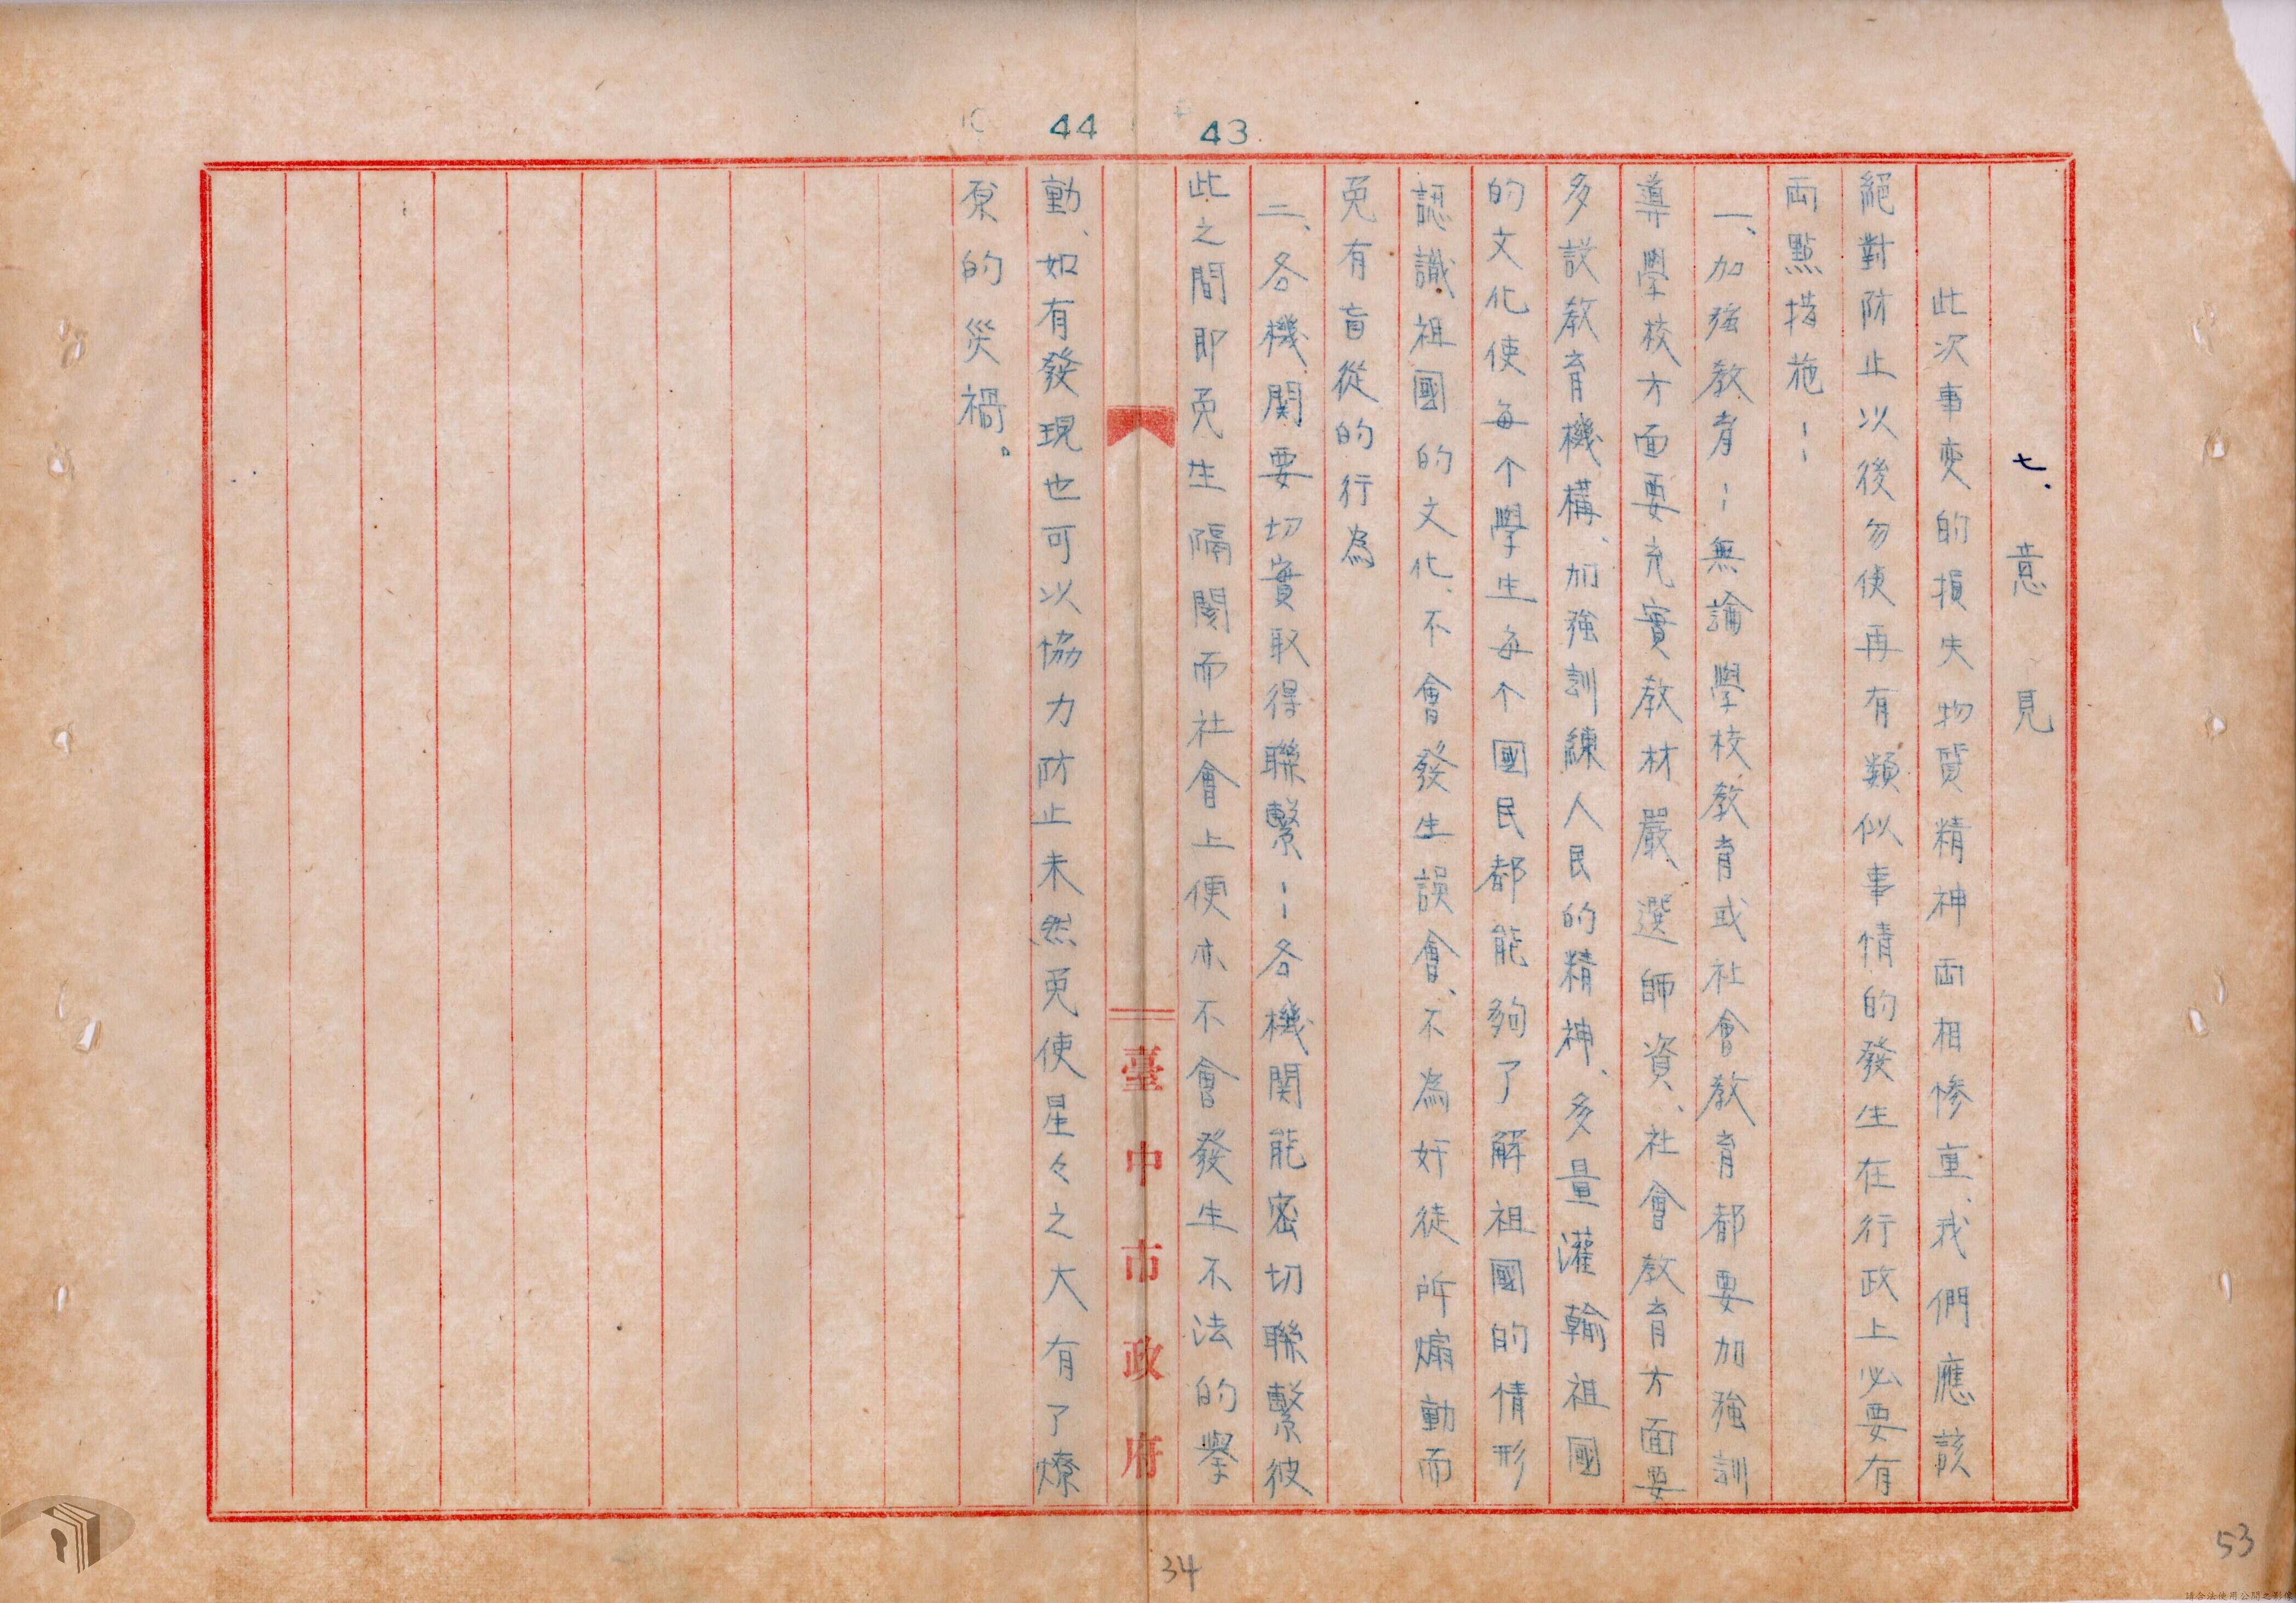 44
43
七、意見
此次事変的損失物質精神両相惨重、我們應該
絕對防止以後勿使再有類似事情的發生在行政上必要有
両點措施--
一、加强教育--無論學校教育或社會教育都要加強訓
導學校方面要充實教材嚴選師資、社會教育方面要
多設教育機構、加強訓練人民的精神、多量灌輸祖國
的文化使每个學生每个國民都能夠了解祖國的情形
認識祖國的文化、不會發生誤會、不為奸徒所煽動而
免有盲從的行為
二、各機関要切實取得聯繫--各機関能密切聯繫彼
此之間即免生隔閡而社會上便亦不會發生不法的舉
臺中市政府
動、如有發現也可以協力防止未然免使星々之大有了燎
原的災禍。
34
53
請合法使用公開之影像